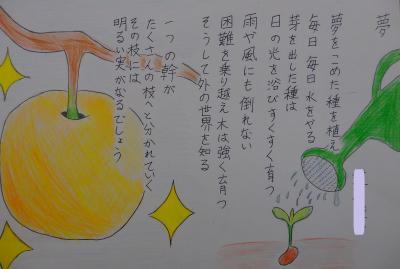 夢
夢をこめた種を植え
毎日毎日水をやる
芽を出した種は
日の光を浴びすくすく育つ
雨や風にも倒れない
困難を乗り越え木は強く育つ
そうして外の世界を知る
一つの幹が
たくさんの枝へと分かれていく
その枝には
明るい実がなるでしょう